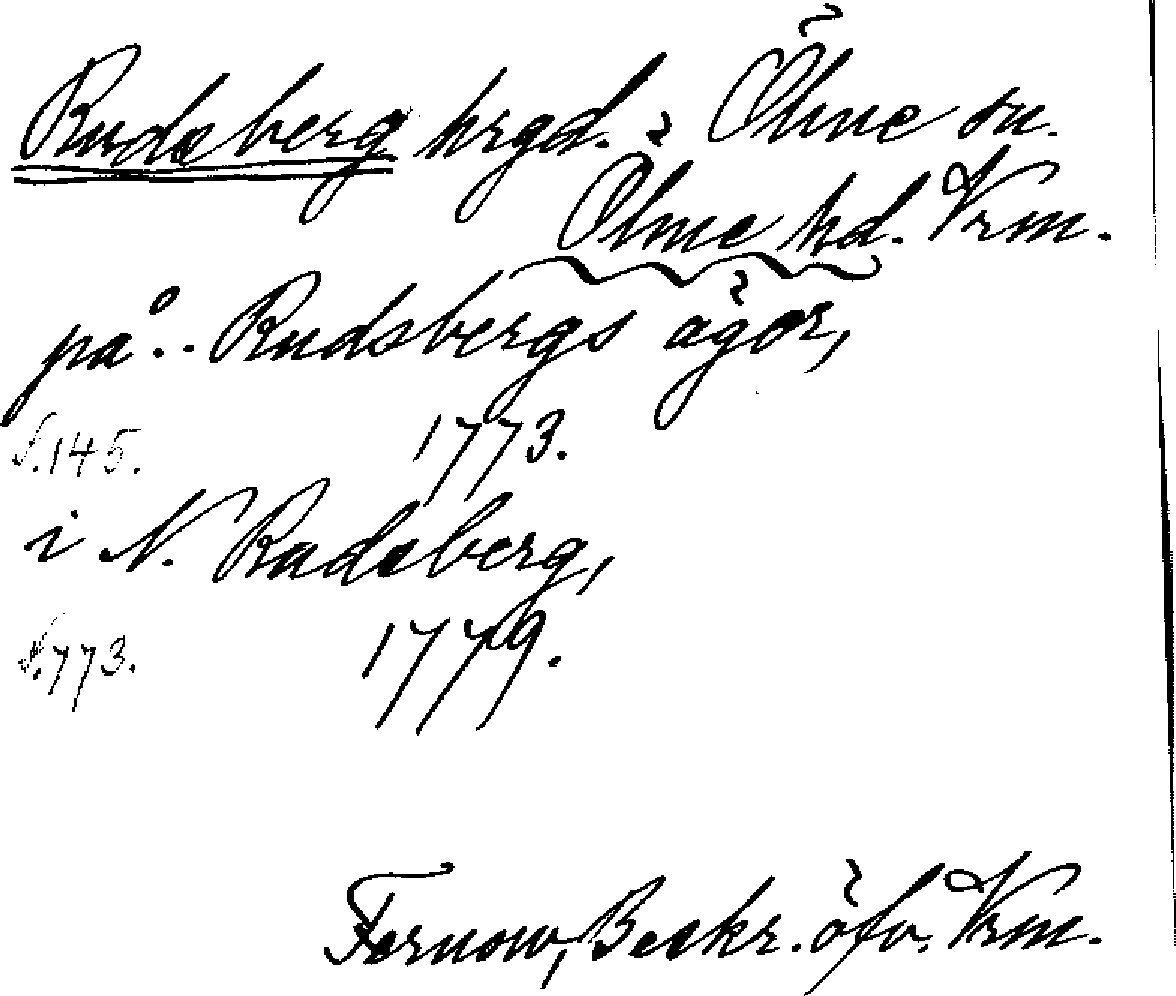 Rudsberg hrgd. i Ölme sn.
Ölme hd. Vrm.
på.. Rudsbergs ägor,
S.145. 1773.
i N. Rudsberg,
S.773. 1779.
Fernow, Beskr. öfv. Vrm.